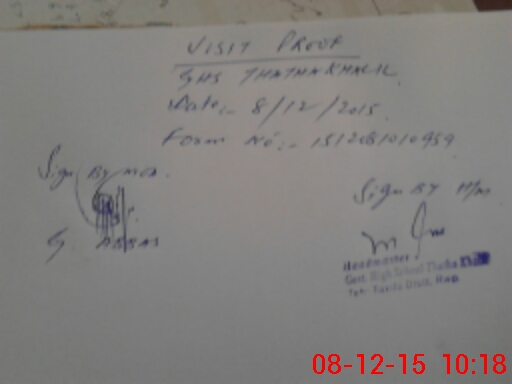 VISIT PROOF
GHS THATHA KHALIL
Date:- 8/12/2015
Form No:- 1512081010959
Sign By MEA.
G. ABBAS
Sign By H/m
Headmaster
Govt. High School Thatha
08-12-15 10:18